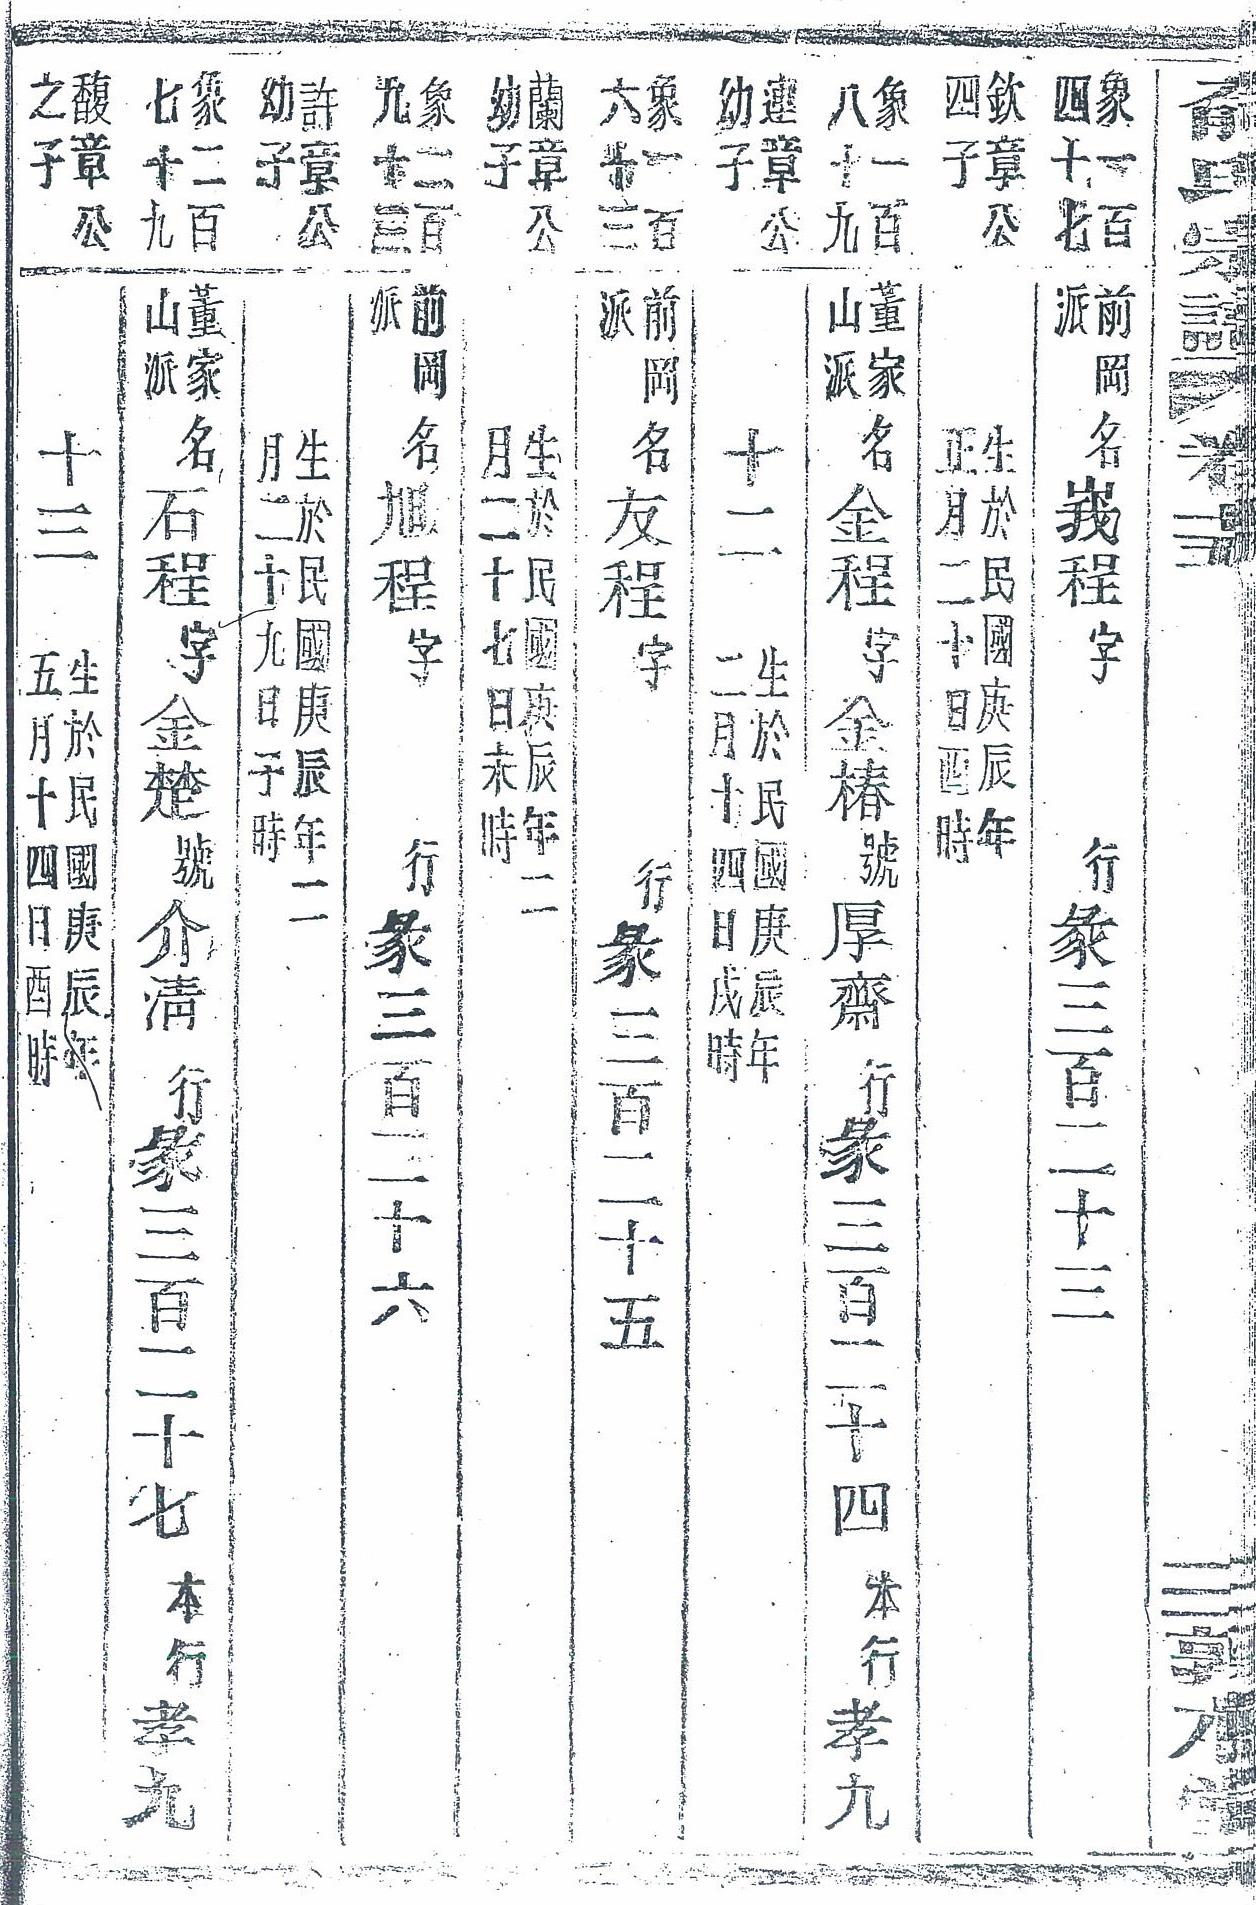 宗譜 卷三
象一百
四十七
欽章公
四子
前岡
派
名峩程字 行彖三百二十三
生於民國庚辰年
正月二十日酉時
象一百
八十九
連章公
幼子
董家
山派
名金程字金椿號厚齋行彖三百二十四本行孝九
十二
生於民國庚辰年
二月十四日戌時
象一百
六十三
蘭章公
幼子
前岡
派
名友程字 行彖三百二十五
生於民國庚辰年二
月二十七日未時
象二百
九十三
許章公
幼子
前岡
派
名旭程字 行彖三百二十六
生於民國庚辰年二
月二十九日子時
象二百
七十九
馥章公
之子
董家
山派
名石程字金楚號介清行彖三百二十七本行孝九
十三
生於民國庚辰年
五月十四日酉時